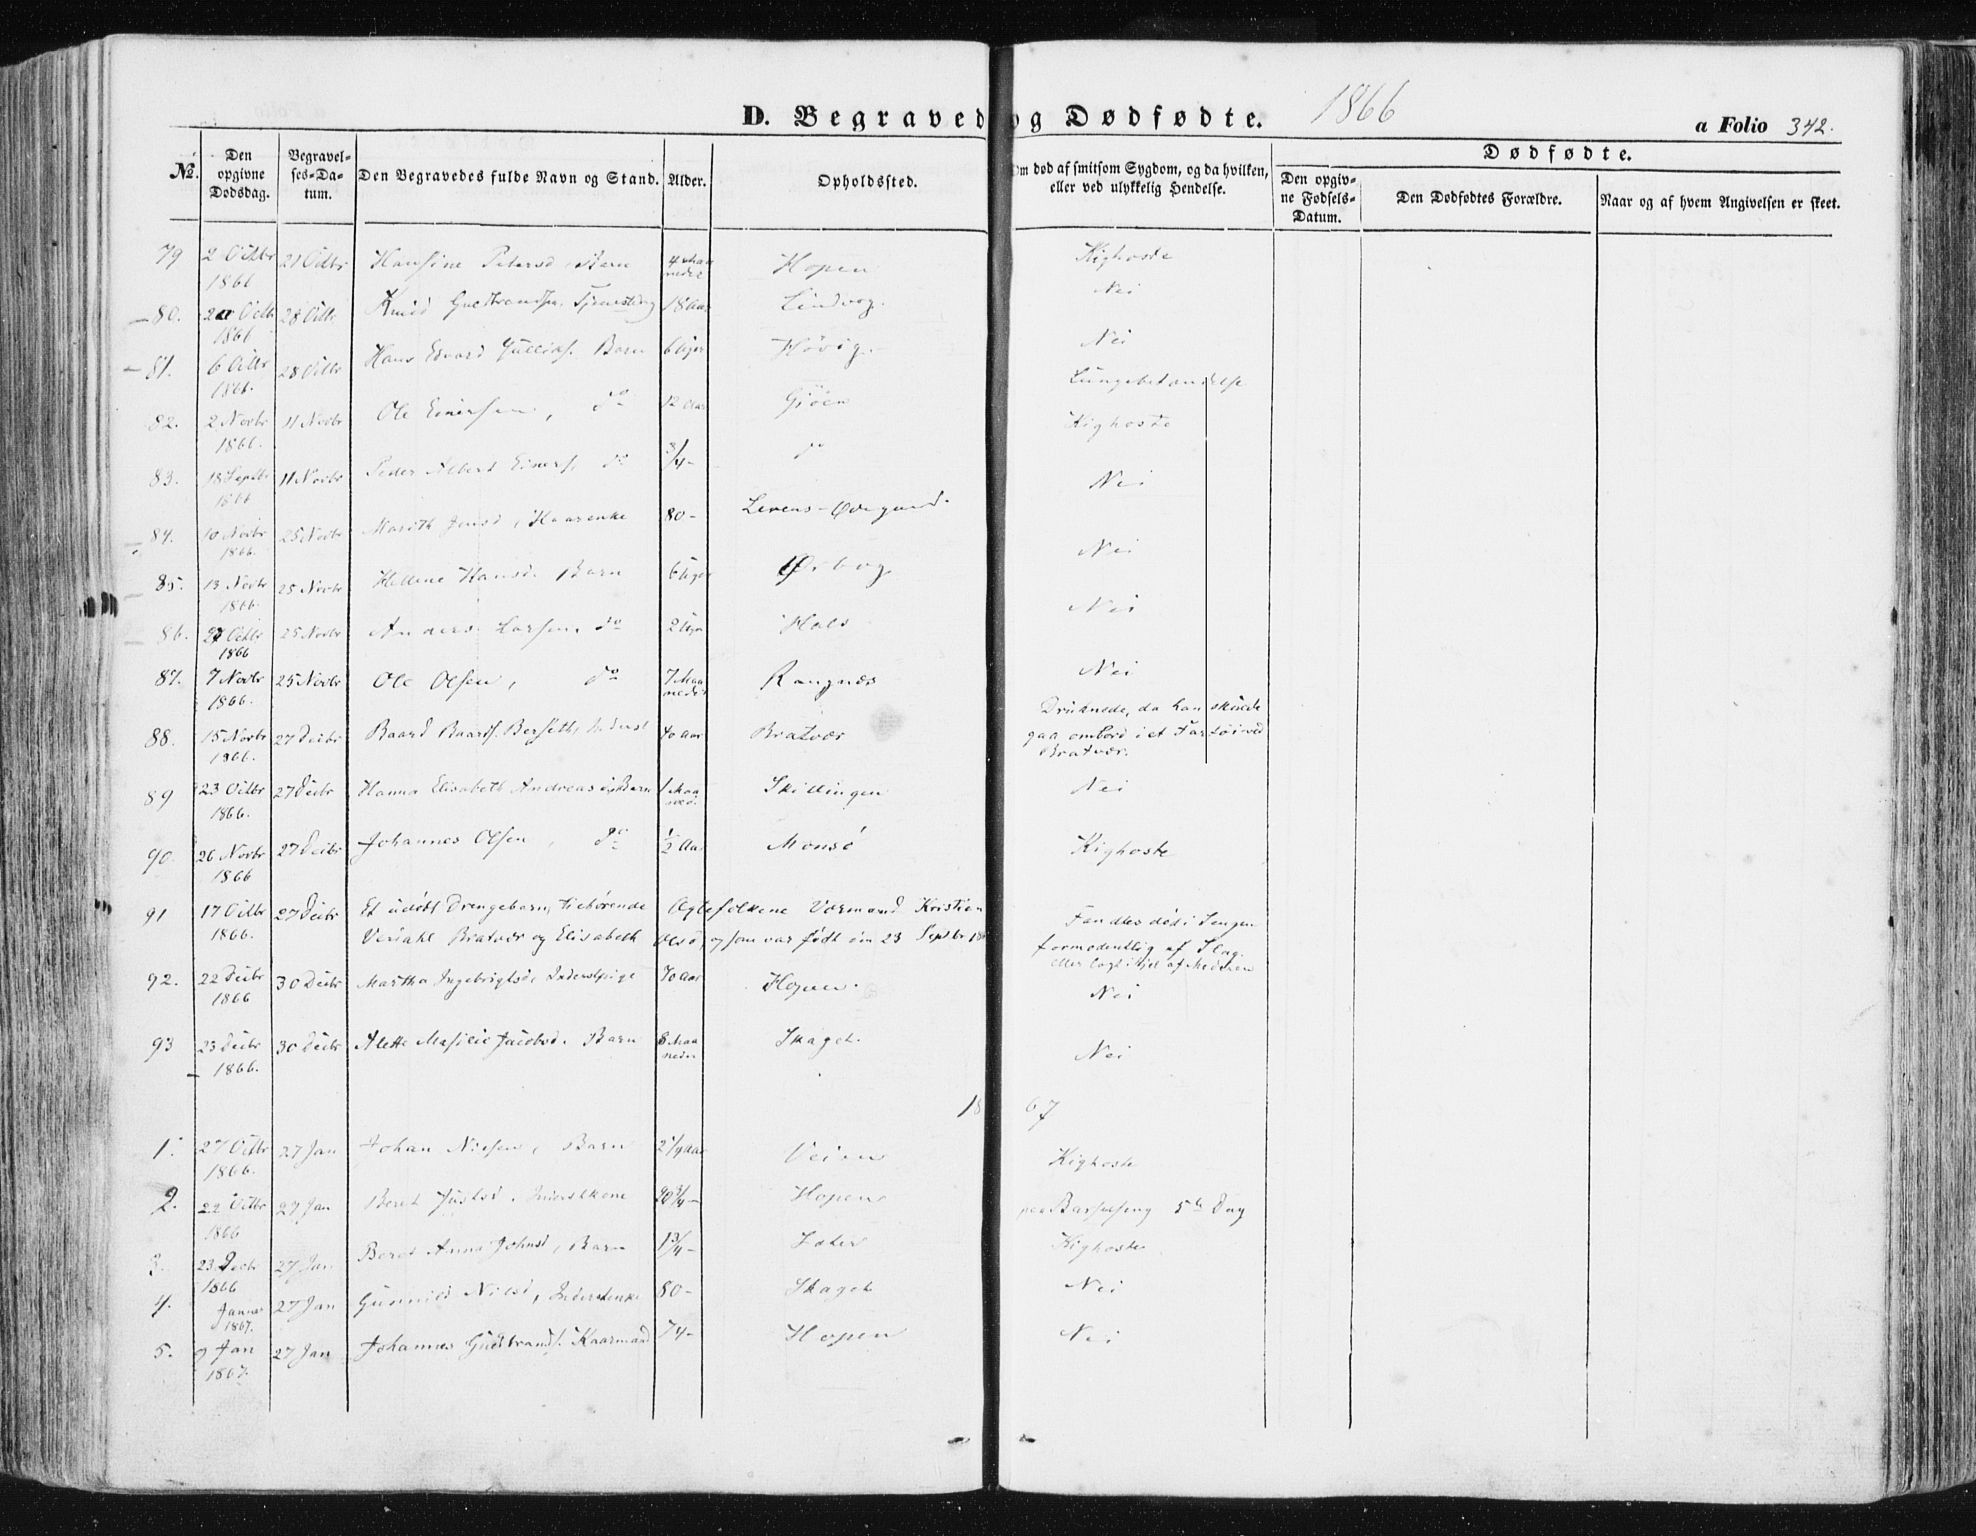 D. Begravede og Dødfødte. 1866
a Folio 342.
No. Den opgivne Dødsdag. Begravelses-Datum. Den Begravedes fulde Navn og Stand. Alder. Opholdssted. Om død af smitsom Sygdom, og da hvilken, eller ved ulykkelig Hendelse. Dødfødte.
Den opgivne Fødsels-Datum. Den Dødfødtes Forældre. Naar og af hvem Angivelsen er skeet.
79 2 Octbr 1866 21 Octbr Hansine Petersd, Barn 4 Maaneder Hopen Kighoste
80. 20 Octbr 1866 28 Octbr Knud Gudbrandsen, 18 Aar Lindvog. Nei
81. 6 Octbr 1866. 28 Octbr Hans Edvard Barn 6 Uger Høvig. Nei
82. 2 Novbr 1866. 11 Novbr Ole Einersen, do 12 Aar Gjøen Lungebetændelse
83. 18 Septbr 1866 11 Novbr Peder Albert Einers. do 3/4 - do Kighoste
84. 10 Novbr 1866. 25 Novbr Marith Jensd, Kaarenke 80 - Lerens-Øvregaard. Nei
85. 13 Novbr 1866. 25 Novbr Hellene Hansd. Barn 6 Uger Ørbog Nei
86. 27 Octbr 1866 25 Novbr Anders Larsen, do 2 Uger Hals Nei
87. 7 Novbr 1866. 25 Novbr Ole Olsen, do 7 Maaneder Rangnæs Nei
88. 15 Novbr 1866. 27 Decbr Baard Baards. Berseth, 40 Aar Bratvær Druknede, da han skulde
gaa ombord i et Fartøi ved
Bratvær.
89 23 Octbr 1866. 27 Decbr Hanna Elisabeth Andreasd, Barn 1 Maaned. Skillingen Nei
90. 26 Novbr 1866 27 Decbr Johannes Olsen, do 1/2 Aar Monsø Kighoste
91 17 Octbr 1866. 27 Decbr Et udøbt Drengebarn, tilhørende Ægtefolkene Vormand Kristian
Bratvær og Elisabeth Olsd, og som var født den 23 Septbr 18 Fandtes død i Sengen
formodentlig af Slag.
eller lagt ihjel af Moderen
92. 22 Decbr 1866 30 Decbr Martha Ingebrigtsd, Inderstpige 70 Aar Hopen. Nei
93 23 Decbr 1866. 30 Decbr Alette Jacobsd. Barn 8 Maaneder Skaget. Nei
1867
1. 27 Octbr 1866. 27 Jan Johan Nielsen, Barn 2 1/4 Aar Veien Kighoste
2. 22 Octbr 1866 27 Jan Beret Justsd, Inderstkone 40 3/4 - Hopen paa Barselseng 5te Dag
3. 23 Decbr 1866 27 Jan Beret Anna Johnsd, Barn 1 3/4 - Kighoste
4. Januar 1867. 27 Jan Gunnild Nilsd, Inderstenke 80 - Skaget Nei
5. 9 Jan 1867. 27 Jan Johannes Gudbrands. Kaarmand 74 - Hopen Nei